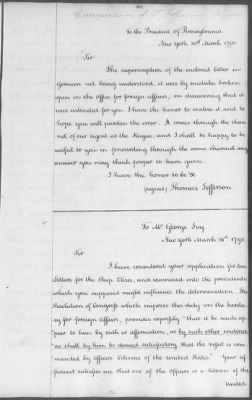 To the President of Pennsylvania
New York 30th March 1790.
Sir
The superscription of the enclosed letter in
German not being understood, it was by mistake broken
open in the office for foreign affairs, on discovering that it
was intended for you. I have the honor to enclose it and to
hope you will pardon the error. It comes through the chan
nel of our agent at the Hague, and I shall be happy to be
useful to you in forwarding through the same channel any
answer you may think proper to have given.
I have the honor to be &c
(signed) Thomas Jefferson
To Mr George Joy
New York March 31st 1790.
Sir
I have considered your application for Sea
Letters for the Ship Eliza, and examined it to the precedents
which you supposed might influence the determination. The
Resolution of Congress which imposes this duty on the Secretary
for foreign affairs, provides expressly "that it be made ap
pear to him by oath or affirmation, or by such other evidence
as shall by him be deemed satisfactory that the vessel is com
manded by officers Citizens of the United States" Your af
fidavit satisfies me that one of the officers is a Citizen of the
United